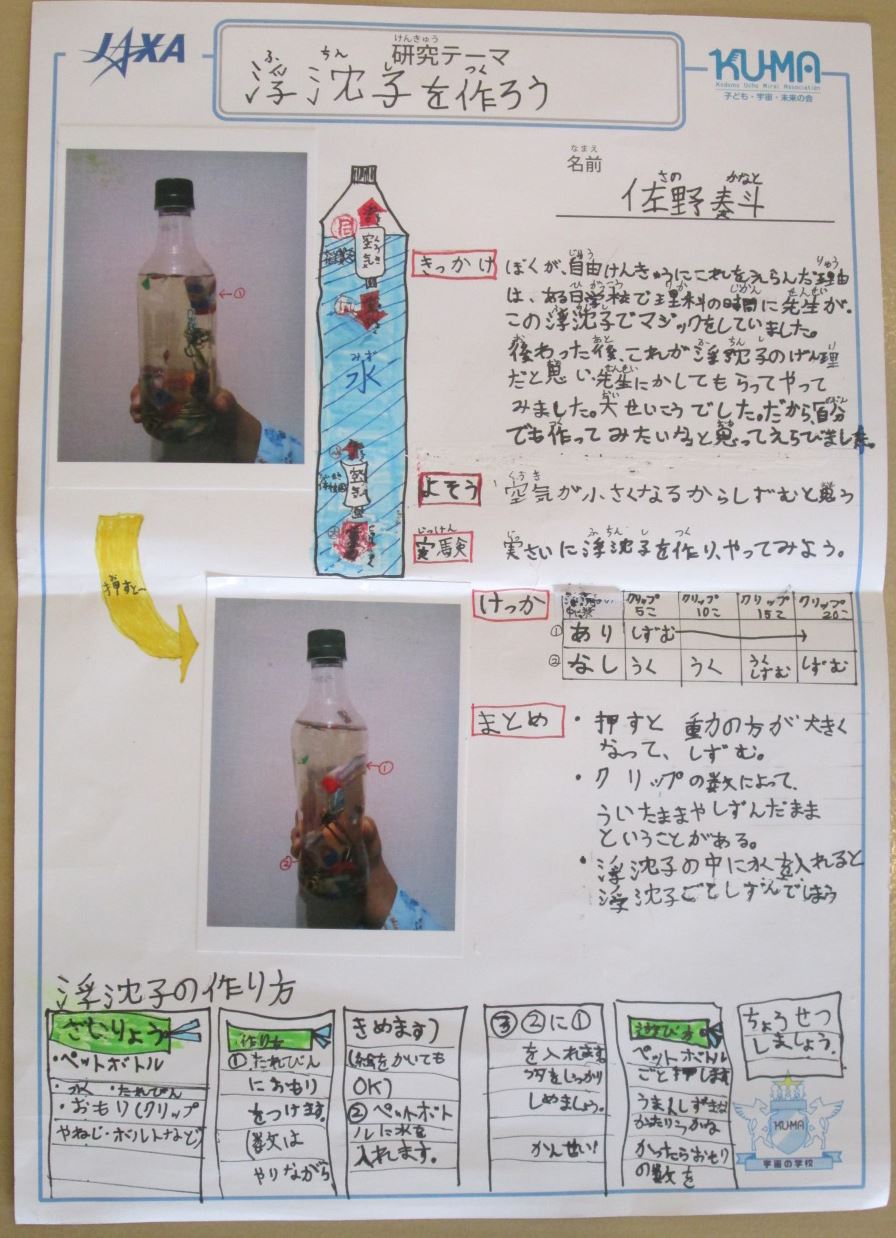 JAXA
けんきゅう
研究テーマ
ふ ちん し つく
浮沈子を作ろう
KU-MA
Kodomo Uchu Mirai Association
子ども・宇宙・未来の会
なまえ
名前
さの かなと
佐野泰斗
①
空気
水
空気
きっかけ
ぼくが、自由けんきゅうにこれをえらんだ理由
は、ある日学校で理科の時間に先生が、
この浮沈子でマジックをしていました。
後わった後、これが浮沈子のげん理
だと思い、先生にかしてもらってやって
みました。大せいこうでした。だから、自分
でも作ってみたいなと思ってえらびました。
よそう
空気が小さくなるからしずむと思う
じっけん
実験
実さいに浮沈子を作り、やってみよう。
押すと〜
けっか
クリップ5こ クリップ10こ クリップ15こ クリップ20こ
① あり しずむ
② なし うく うく うくしずむ しずむ
①
②
まとめ
・押すと動力の方が大きく
なって、しずむ。
・クリップの数によって、
ういたままやしずんだまま
ということがある。
・浮沈子の中に水を入れると
浮沈子ごとしずんでしまう
浮沈子の作り方
ざいりょう
・ペットボトル
・水 ・たれびん
・おもり(クリップ
やねじ・ボルトなど)
作り方
①たれびん
におもり
をつけます。
(数は
やりながら
きめます)
(絵をかいても
OK)
②ペットボト
ルに水を
入れます。
③②に①
を入れます。
フタをしっかり
しめましょう。
かんせい!
遊び方
ペットボトル
ごと押します
うまくしずまな
かったりうかな
かったらおもり
の数を
ちょうせつ
しましょう。
KUMA
宇宙の学校